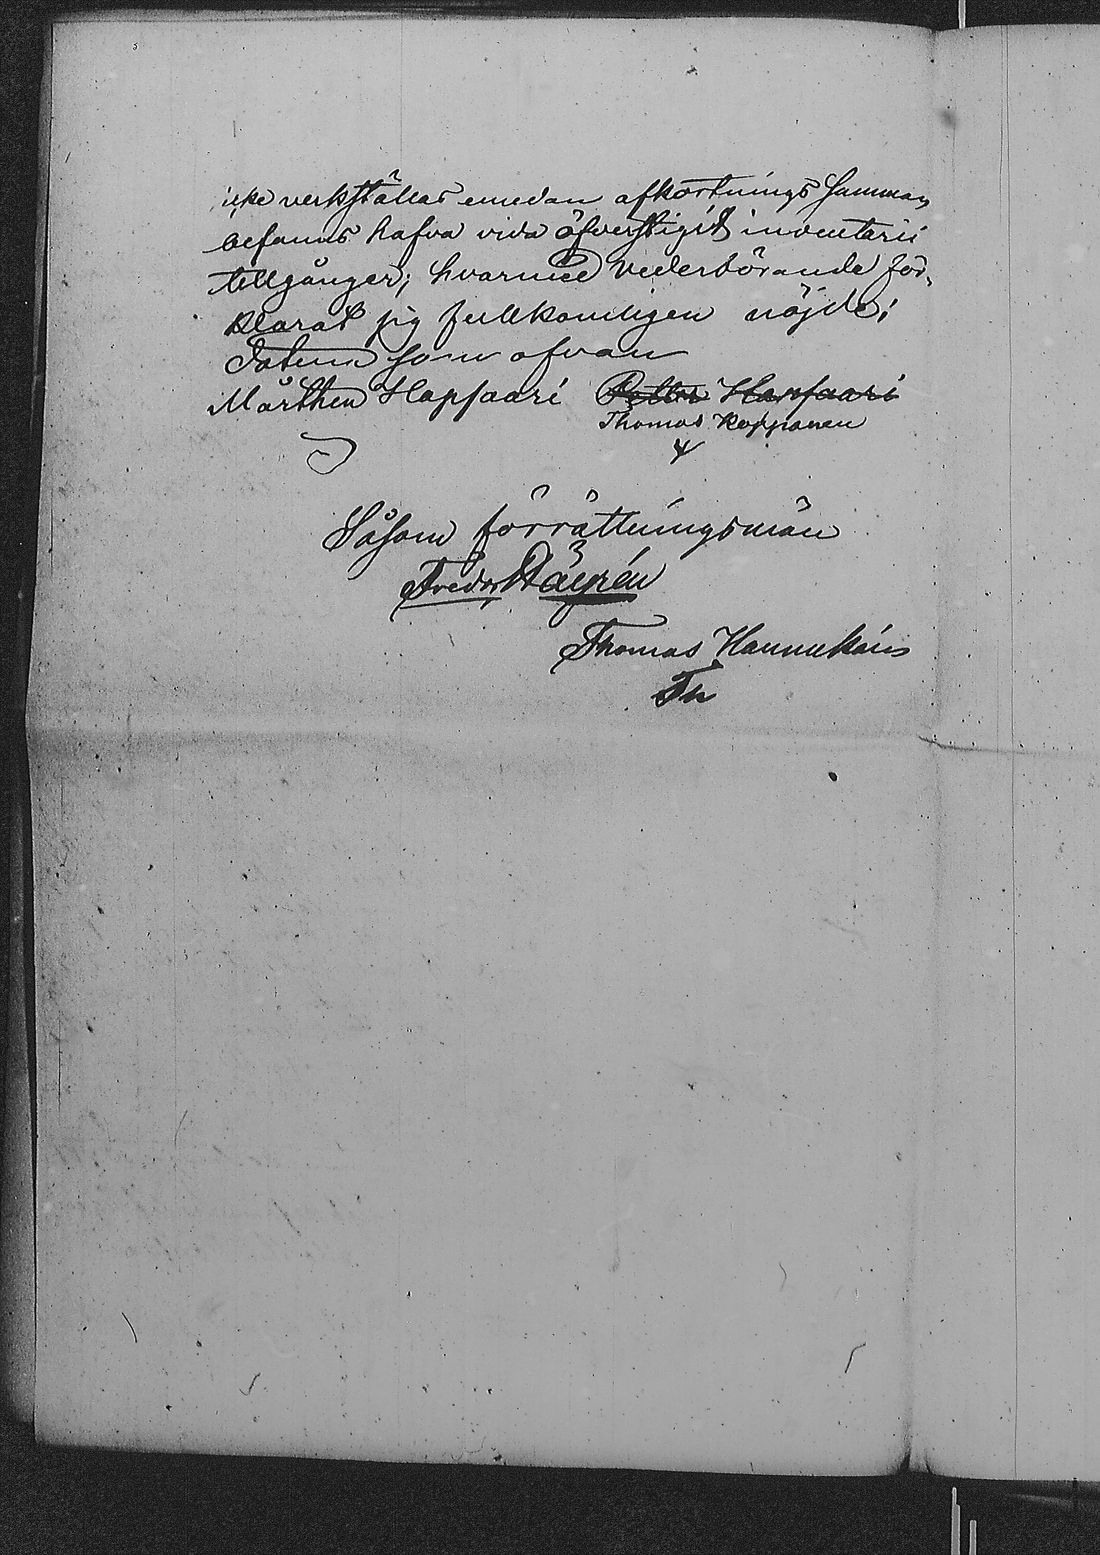 icke verkställas emedan afkortnings summan
befanns hafva vida öfverstigit inventarii
tillgånger; hvarmed vederbörande för-
klarat sig fullkomligen nöjde;
Datum som ofvan
Mårthen Hapsaari Petter Hapsaari
Thomas Koppanen
Såsom förrättningsmän
Fredr
Thomas Hannukain
Th